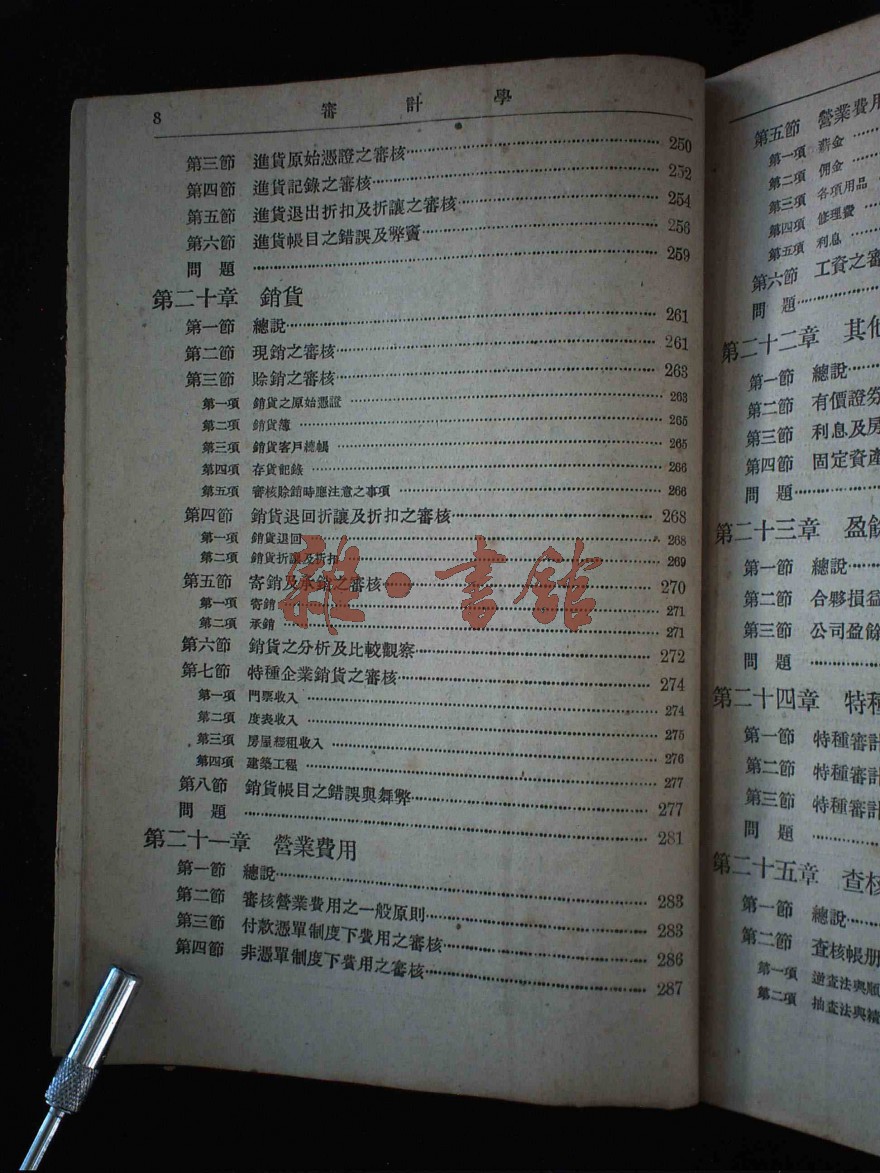 8 審計學
第三節 進貨原始憑證之審核 250
第四節 進貨記錄之審核 252
第五節 進貨退出折扣及折讓之審核 254
第六節 進貨帳目之錯誤及弊竇 256
問題 259
第二十章 銷貨
第一節 總說 261
第二節 現銷之審核 261
第三節 賒銷之審核 263
第一項 銷貨之原始憑證 263
第二項 銷貨簿 265
第三項 銷貨客戶總帳 265
第四項 存貨記錄 266
第五項 審核賒銷時應注意之事項 266
第四節 銷貨退回折讓及折扣之審核 268
第一項 銷貨退回 268
第二項 銷貨折讓及折扣 269
第五節 寄銷及承銷之審核 270
第一項 寄銷 271
第二項 承銷 271
第六節 銷貨之分析及比較觀察 272
第七節 特種企業銷貨之審核 274
第一項 門票收入 274
第二項 度表收入 275
第三項 房屋經租收入 276
第四項 建築工程 277
第八節 銷貨帳目之錯誤與舞弊 277
問題 281
第二十一章 營業費用
第一節 總說 283
第二節 審核營業費用之一般原則 283
第三節 付款憑單制度下費用之審核 286
第四節 非憑單制度下費用之審核 287
雜·書館
第五節 營業費用
第一項 薪金
第二項 佣金
第三項 各項用品
第四項 修理費
第五項 利息
第六節 工資之審
問題
第二十二章 其他
第一節 總說
第二節 有價證券
第三節 利息及房
第四節 固定資產
問題
第二十三章 盈餘
第一節 總說
第二節 合夥損益
第三節 公司盈餘
問題
第二十四章 特種
第一節 特種審計
第二節 特種審計
第三節 特種審計
問題
第二十五章 查核
第一節 總說
第二節 查核帳册
第一項 逆查法與順
第二項 抽查法與